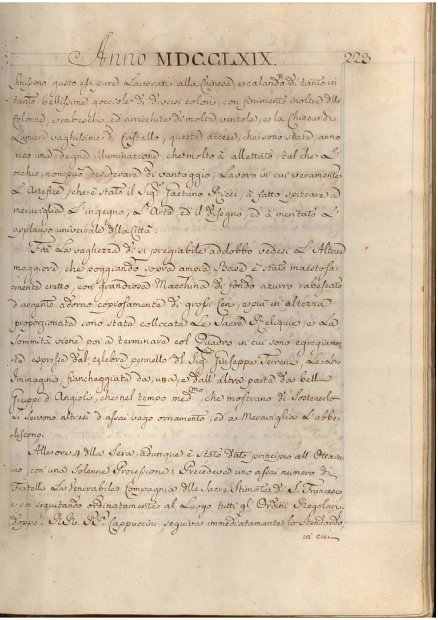 Anno MDCCLXIX. 223
finissimo questo esi pure lavorato alla Chinese, e calando di tanto in
tanto bellissime gocciole di diversi colori, con finimento inoltre delle
Colonne, rabeschi, ed arricchito di molte ventole, e la Chiavardi
Lumiere vaghissime di Cristallo, queste accese, che sono state, anno
reso una degna illuminazione, che molto à allettato, tal che L'
occhio, non può desiderar di vantaggio, Lavoro in cui veramente
L'Artefice, che è stato il Sig.r Gaetano Ricci, à fatto spiccare a
meraviglia L'ingegno, L'Arte, ed il disegno, ed à meritato L'
applauso universale della Città:
Frà La vaghezza di sì pregiabile addobbo vedesi L'Altare
maggiore, che poggiando sopra ampia Base è stato maestosa-
mente eretto, con grandiosa Macchina di fondo azurro rabescato
d'argento adorno copiosamente di grossi Ceri, e più in altezza
proporzionata sono state collocate Le Sacre Reliquie, e La
Sommità viene poi a terminare col Quadro in cui sono egregiamente
espresse dal celebre pennello del Sig.r Giuseppe Terreni Le Loro
Immagini, fiancheggiate da una, e dall'altra parte da bell
Gruppi d'Angioli, che nel tempo med.mo che mostrano di Sostenerlo
ai Servono altresì d'assai vago ornamento, ed a Meraviglia L'abbe-
liscono.
Alle ore 4 della Sera, adunque è Stato dato principio all'Ottava-
rio, con una Solenne Processione: Precedeva uno assai numero di
Fratelli La Venerabile Compagnia delle Sacre Stimate di S. Francesco
e poi seguitando ordinatamente al Luogo tutti gl'Ordini Regolari
doppo i RR. PP. Cappuccini, seguiva immediatamente lo Stendardo,
in cui